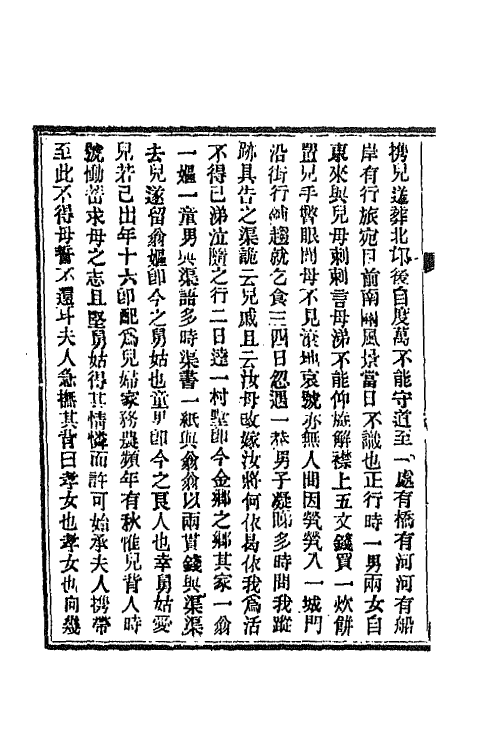 携兒送葬北邙後自度萬不能守道至一處有橋有河河有船
岸有行旅宛目前南關風景當日不識也正行時一男兩女自
東來與兒母刺刺言母涕不能仰旋解襟上五文錢買一炊餅
置兒手瞥眼間母不見滾地哀號亦無人問因煢煢入一城門
沿街行趨就乞食三四日忽遇一男子凝睇多時問我蹤
跡具告之渠詭云兒戚且云汝母改嫁汝將何依曷依我為活
不得已涕泣隨之行二日達一村墅即今金鄉之鄉其家一翁
一媼一童男與渠語多時渠書一紙與翁翁以兩貫錢與渠渠
去兒遂留翁媼即今之舅姑也童男即今之良人也幸舅姑愛
兒若己出年十六即配為兒婦家務農頻年有秋惟兒背人時
號慟嘗求母之志且堅舅姑得其情憐而許可始承夫人攜帶
至此不得母誓不還耳夫人急撫其背曰孝女也孝女也向幾